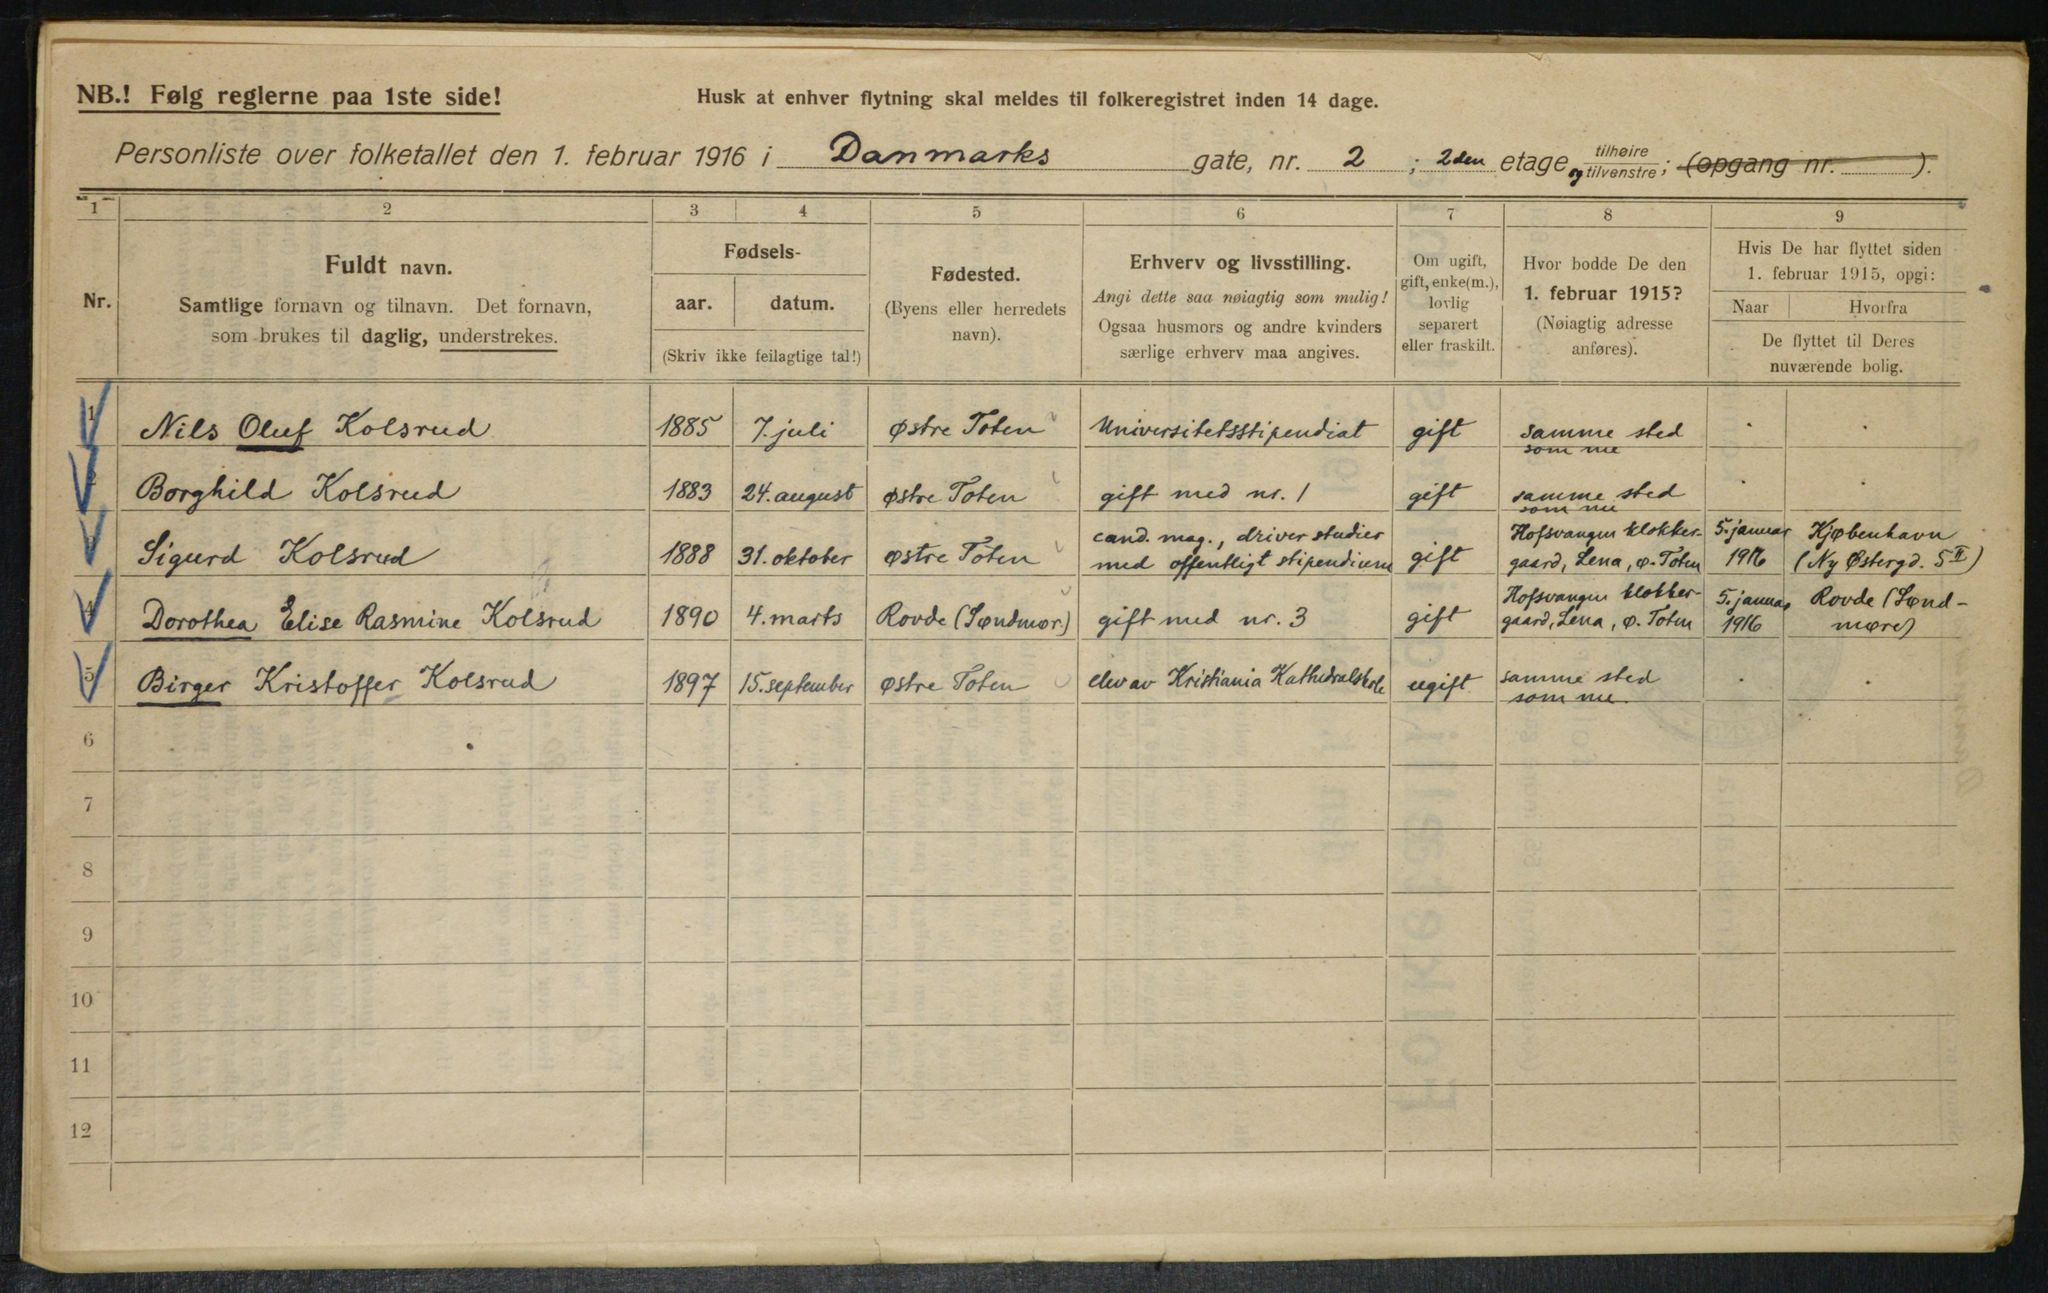 NB.! Følg reglerne paa 1ste side!
Husk at enhver flytning skal meldes til folkeregistret inden 14 dage.
Personliste over folketallet den 1. februar 1916 i Danmarks gate, nr. 2 ; 2den etage og tilhøire tilvenstre; (opgang nr. ).
1 2 3 4 5 6 7 8 9
Nr.
Fuldt navn.
Samtlige fornavn og tilnavn. Det fornavn,
som brukes til daglig, understrekes.
Fødsels-
aar. datum.
(Skriv ikke feilagtige tal!)
Fødested.
(Byens eller herredets
navn).
Erhverv og livsstilling.
Angi dette saa nøiagtig som mulig!
Ogsaa husmors og andre kvinders
særlige erhverv maa angives.
Om ugift,
gift, enke(m.),
lovlig
separert
eller fraskilt.
Hvor bodde De den
1. februar 1915?
(Nøiagtig adresse
anføres).
Hvis De har flyttet siden
1. februar 1915, opgi:
Naar Hvorfra
De flyttet til Deres
nuværende bolig.
1 Nils Oluf Kolsrud 1885 7. juli Østre Toten Universitetsstipendiat gift samme sted
som nu
2 Borghild Kolsrud 1883 24. august Østre Toten gift med nr. 1 gift samme sted
som nu
3 Sigurd Kolsrud 1888 31. oktober Østre Toten cand. mag., driver studier gift Hofsvangen klokker- 5. januar Kjøbenhavn
med offentligt stipendium gaard, Lena, Ø. Toten 1916 (Ny Østergd. 5 II)
4 Dorothea Elise Rasmine Kolsrud 1890 4. marts Rovde (Søndmør.) gift med nr. 3 gift Hofsvangen klokker- 5. januar Rovde (Sønd-
gaard, Lena, Ø. Toten 1916 møre)
5 Birger Kristoffer Kolsrud 1897 15. september Østre Toten elev av Kristiania Kathedralskole ugift samme sted
som nu
6
7
8
9
10
11
12